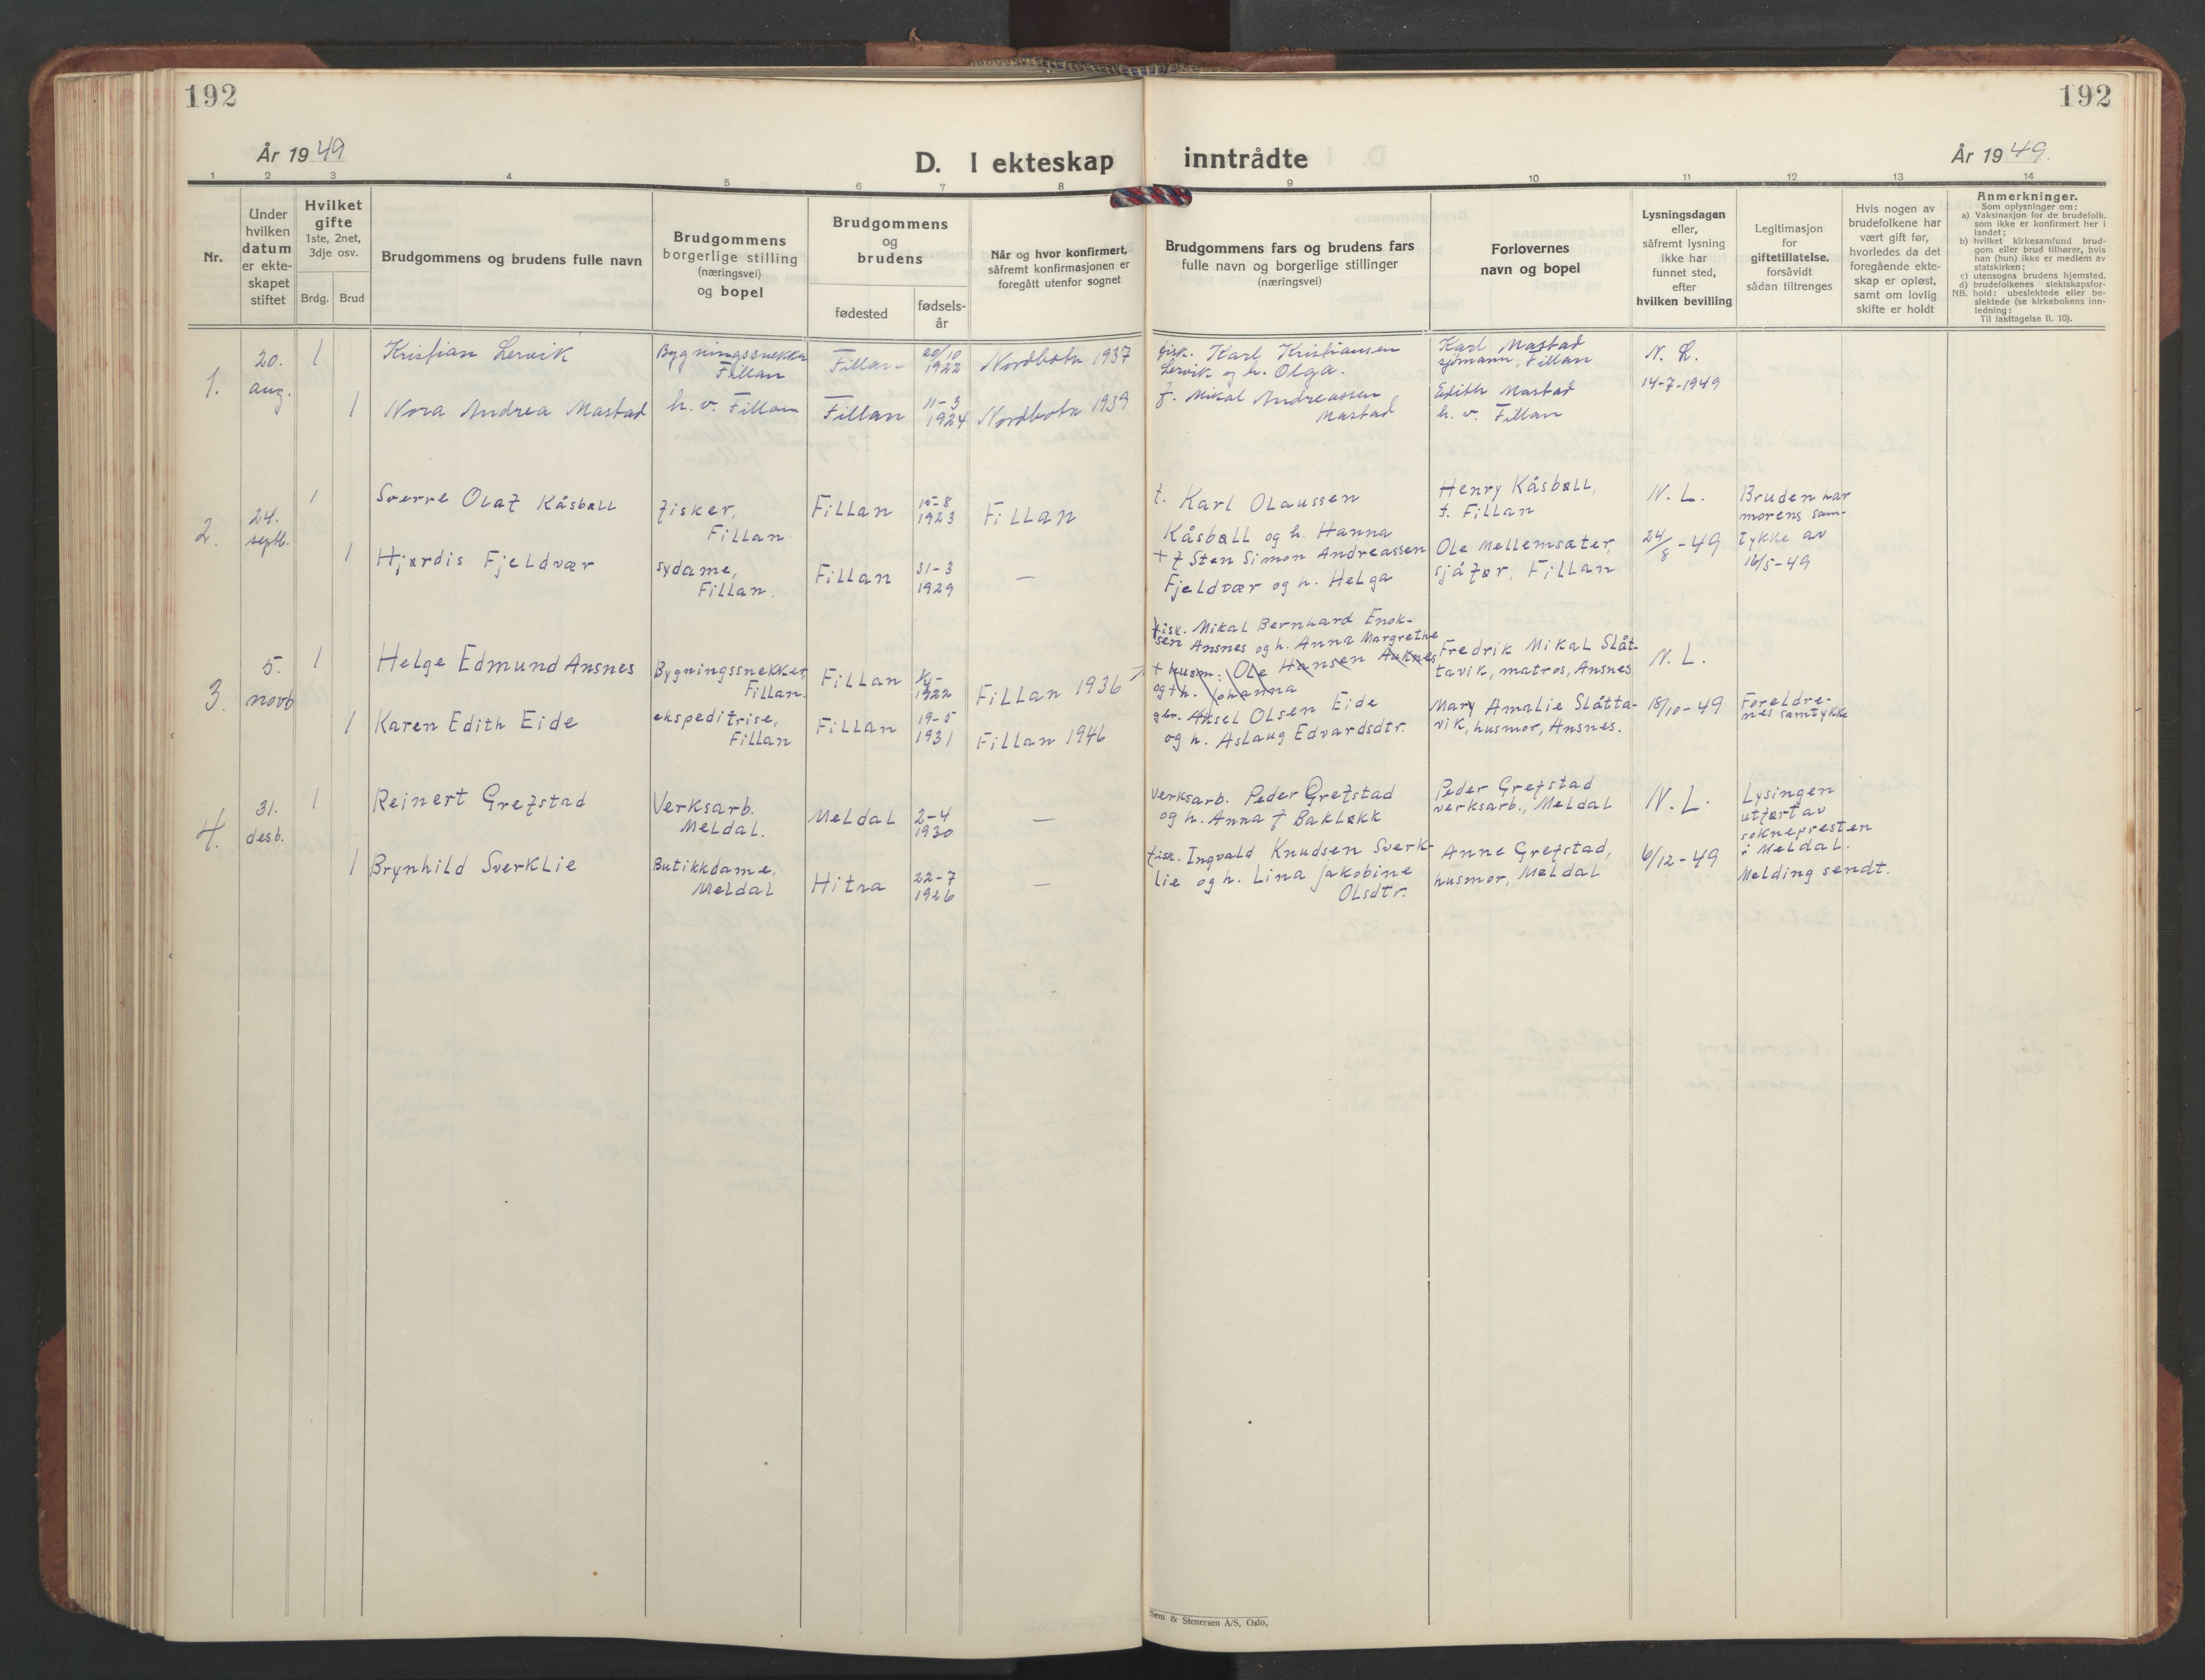 192
192
År 1949
D. I ekteskap inntrådte
År 1949.
1 2 3 4 5 6 7 8 9 10 11 12 13 14
Nr.
Under
hvilken
datum
er ekte-
skapet
stiftet
Hvilket
gifte
1ste, 2net,
3dje osv.
Brdg. Brud
Brudgommens og brudens fulle navn
Brudgommens
borgerlige stilling
(næringsvei)
og bopel
Brudgommens
og
brudens
fødested
fødsels-
år
Når og hvor konfirmert,
såfremt konfirmasjonen er
foregått utenfor sognet
Brudgommens fars og brudens fars
fulle navn og borgerlige stillinger
(næringsvei)
Forlovernes
navn og bopel
Lysningsdagen
eller,
såfremt lysning
ikke har
funnet sted,
efter
hvilken bevilling
Legitimasjon
for
giftetillatelse,
forsåvidt
sådan tiltrenges
Hvis nogen av
brudefolkene har
vært gift før,
hvorledes da det
foregående ekte-
skap er opløst,
samt om lovlig
skifte er holdt
Anmerkninger.
Som oplysninger om:
a) Vaksinasjon for de brudefolk,
som ikke er konfirmert her i
landet;
b) hvilket kirkesamfund brud-
gom eller brud tilhører, hvis
han (hun) ikke er medlem av
statskirken;
c) utensogns brudens hjemsted.
d) brudefolkenes slektskapsfor-
NB. hold: ubeslektede eller be-
slektede (se kirkebokens inn-
ledning:
Til iakttagelse II. 10).
1.
20.
aug.
1
Kristian Lervik
Bygningssnekker
Fillan
Fillan
20/10
1922
Nordbotn 1937
fisk. Karl Kristiansen
Lervik og h. Olga.
Karl Mastad
sjømann, Fillan
N. L.
1
Nora Andrea Mastad
h. v. Fillan
Fillan
11-3
1924
Nordbotn 1939
f. Mikal Andreassen
Mastad
Edith Mastad
h. v. Fillan
14-7-1949
2.
24.
septb.
1
Sverre Olaf Kåsbøll
fisker,
Fillan
Fillan
15-8
1923
Fillan
f. Karl Olaussen
Kåsbøll og h. Hanna
Henry Kåsbøll,
f. Fillan
N. L.
Bruden har
morens sam-
tykke av
16/5-49
1
Hjørdis Fjeldvær
sydame,
Fillan.
Fillan
31-3
1929
—
+ f Sten Simon Andreassen
Fjeldvær og h. Helga
Ole Mellemsæter,
sjåfør, Fillan
24/8-49
3.
5.
novb
1
Helge Edmund Ansnes
Bygningssnekker,
Fillan.
Fillan
1922
Fillan 1936
fisk. Mikal Bernhard Enok-
sen Ansnes og h. Anna Margrethe
+ husm: Ole Hansen
og + h. Johanna
Fredrik Mikal Slåt-
tavik, matros, Ansnes
N. L.
1
Karen Edith Eide
ekspeditrise,
Fillan
Fillan
19-5
1931
Fillan 1946
gbr. Aksel Olsen Eide
og h. Aslaug Edvardsdtr.
Mary Amalie Slåtta-
vik, husmor, Ansnes.
18/10-49
Foreldre-
nes samtykke
4.
31.
desb.
1
Reinert Grefstad
Verksarb.
Meldal.
Meldal
2-4
1930
—
Verksarb. Peder Grefstad
og h. Anna f Bakløkk
Peder Grefstad
verksarb., Meldal
N. L.
Lysingen
utført av
soknepresten
i Meldal.
Melding sendt.
1
Brynhild Sverklie
Butikkdame,
Meldal
Hitra
22-7
1926
—
fisk. Ingvald Knudsen Sverk-
lie og h. Lina Jakobine
Olsdtr.
Anne Grefstad,
husmor, Meldal
6/12-49
Sem & Stenersen A/S, Oslo.